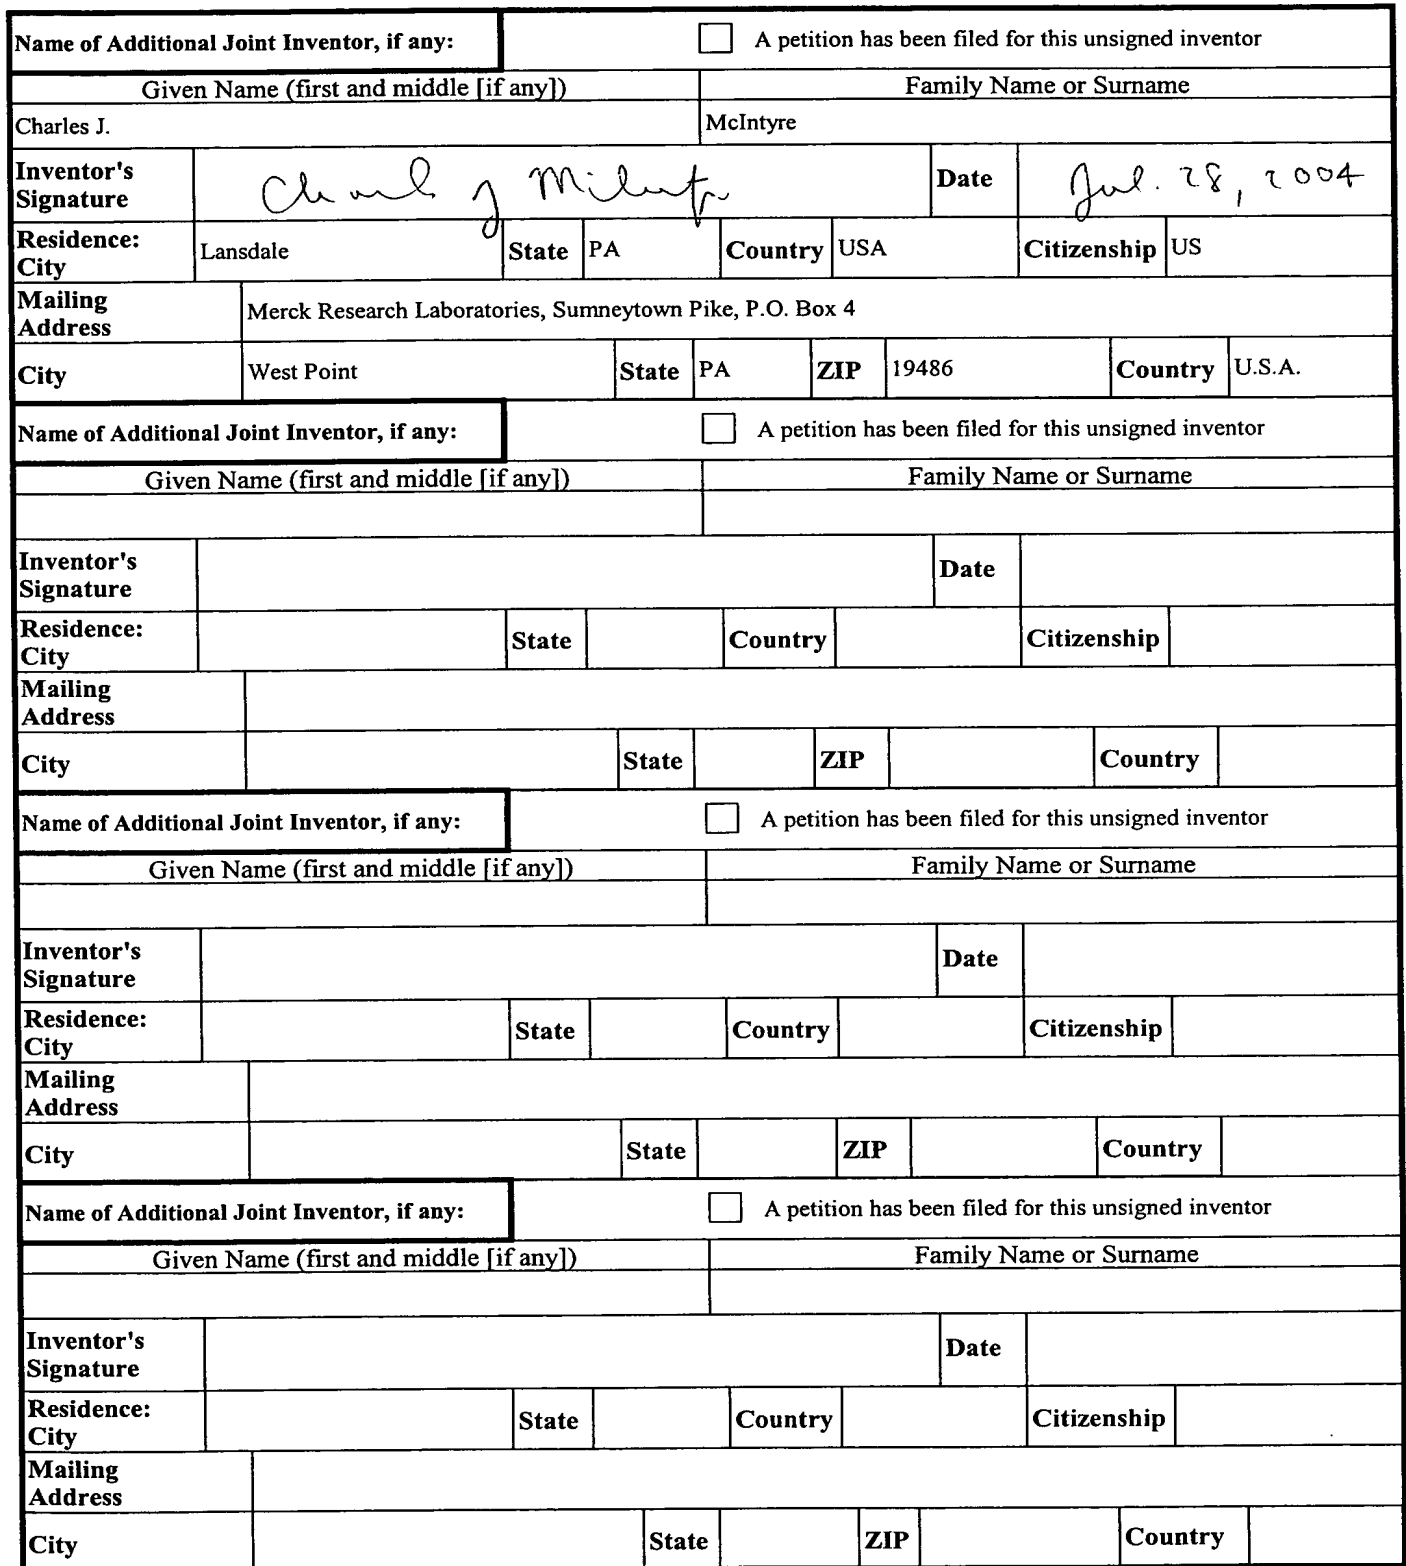 Name of Additional Joint Inventor, if any: A petition has been filed for this unsigned inventor
Given Name (first and middle [if any]) Family Name or Surname
Charles J. McIntyre
Inventor's Signature Charles J McIntyre Date Jul. 28, 2004
Residence: City Lansdale State PA Country USA Citizenship US
Mailing Address Merck Research Laboratories, Sumneytown Pike, P.O. Box 4
City West Point State PA ZIP 19486 Country U.S.A.
Name of Additional Joint Inventor, if any: A petition has been filed for this unsigned inventor
Given Name (first and middle [if any]) Family Name or Surname
Inventor's Signature Date
Residence: City State Country Citizenship
Mailing Address
City State ZIP Country
Name of Additional Joint Inventor, if any: A petition has been filed for this unsigned inventor
Given Name (first and middle [if any]) Family Name or Surname
Inventor's Signature Date
Residence: City State Country Citizenship
Mailing Address
City State ZIP Country
Name of Additional Joint Inventor, if any: A petition has been filed for this unsigned inventor
Given Name (first and middle [if any]) Family Name or Surname
Inventor's Signature Date
Residence: City State Country Citizenship
Mailing Address
City State ZIP Country